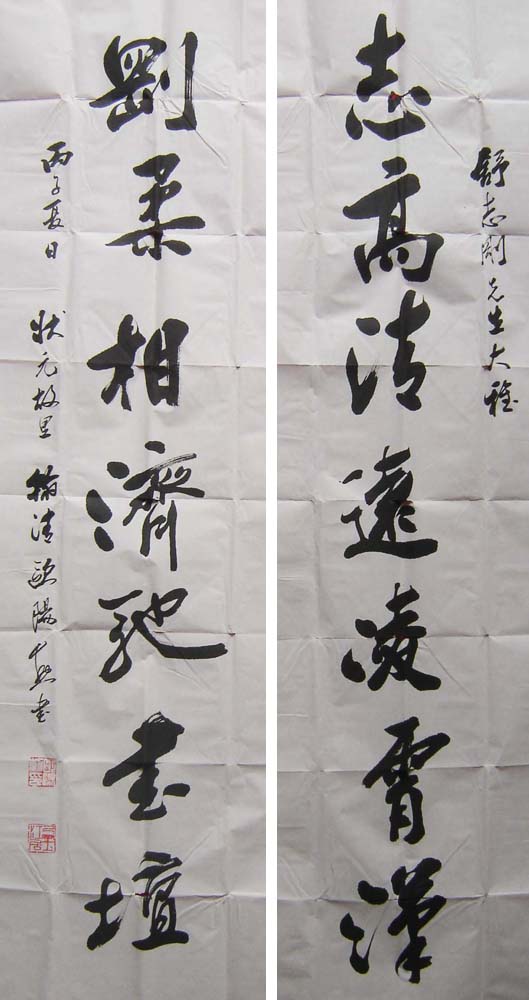 舒志剛先生大雅
志高清遠凌霄漢
剛柔相濟馳書壇
丙子夏日
狀元故里 清歐陽書